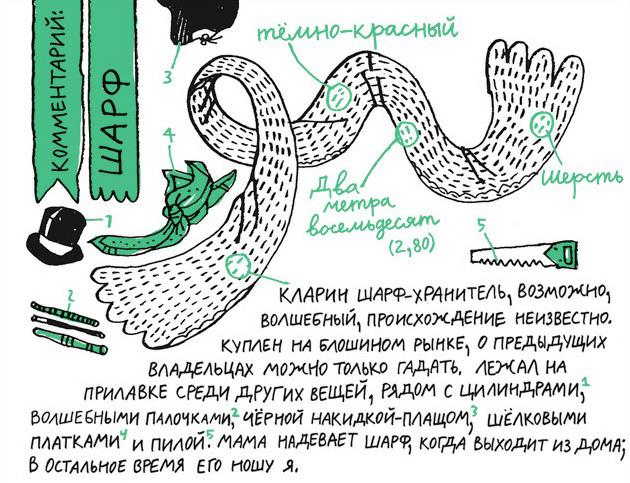 КОММЕНТАРИЙ:
ШАРФ
3
тёмно-красный
4
1
Два
метра
восемьдесят
(2,80)
шерсть
5
2
КЛАРИН ШАРФ-ХРАНИТЕЛЬ, ВОЗМОЖНО,
ВОЛШЕБНЫЙ, ПРОИСХОЖДЕНИЕ НЕИЗВЕСТНО.
КУПЛЕН НА БЛОШИНОМ РЫНКЕ, О ПРЕДЫДУЩИХ
ВЛАДЕЛЬЦАХ МОЖНО ТОЛЬКО ГАДАТЬ. ЛЕЖАЛ НА
ПРИЛАВКЕ СРЕДИ ДРУГИХ ВЕЩЕЙ, РЯДОМ С ЦИЛИНДРАМИ,1
ВОЛШЕБНЫМИ ПАЛОЧКАМИ,2 ЧЁРНОЙ НАКИДКОЙ-ПЛАЩОМ,3 ШЁЛКОВЫМИ
ПЛАТКАМИ4 И ПИЛОЙ.5 МАМА НАДЕВАЕТ ШАРФ, КОГДА ВЫХОДИТ ИЗ ДОМА;
В ОСТАЛЬНОЕ ВРЕМЯ ЕГО НОШУ Я.